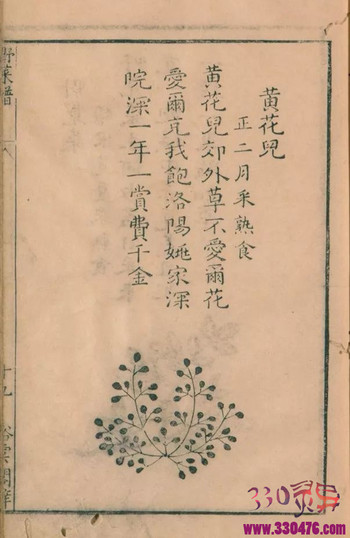 黄花兒
正二月采熟食
黄花兒郊外草不愛爾花
愛爾充我飽洛陽姚家深
院深一年一賞費千金
野菜譜
十九
330
www.330476.com